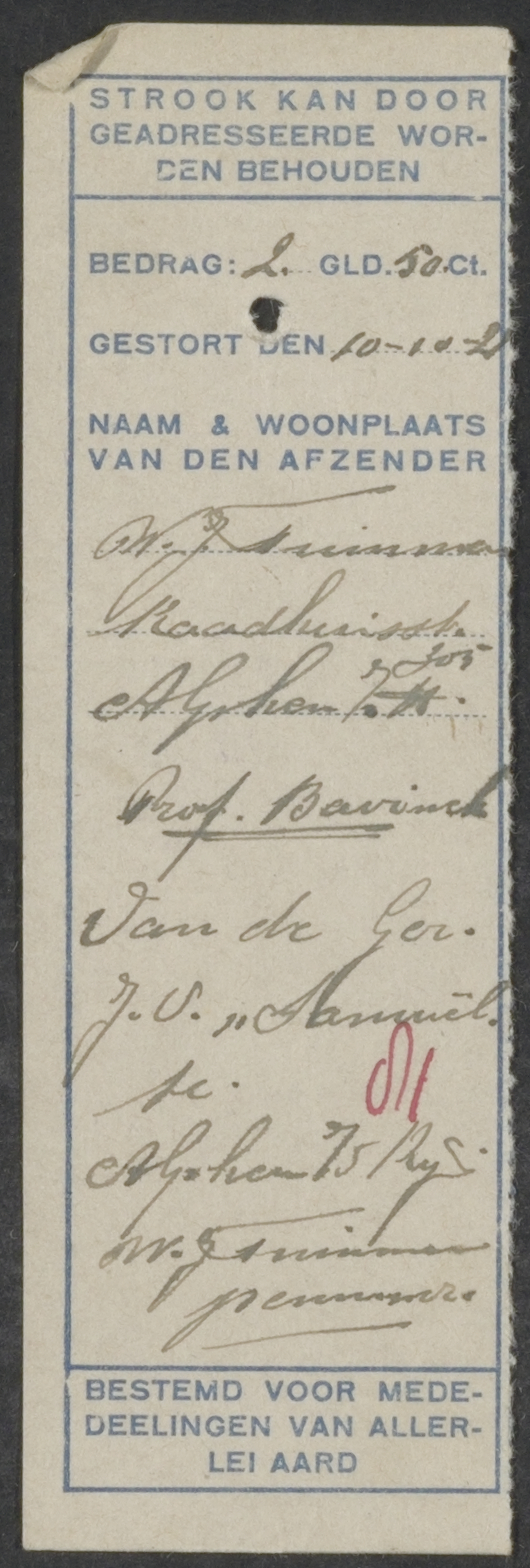 STROOK KAN DOOR
GEADRESSEERDE WOR-
DEN BEHOUDEN
BEDRAG: 2. GLD. 50 Ct.
GESTORT DEN 10-10-21
NAAM & WOONPLAATS
VAN DEN AFZENDER
W. J.
Raadhuisstr.
305
Alphen
Prof. Bavinck
Van de Ger.
J. V. „Samuël.
te.
Alphen
81
W. J.
penningmr.
BESTEMD VOOR MEDE-
DEELINGEN VAN ALLER-
LEI AARD